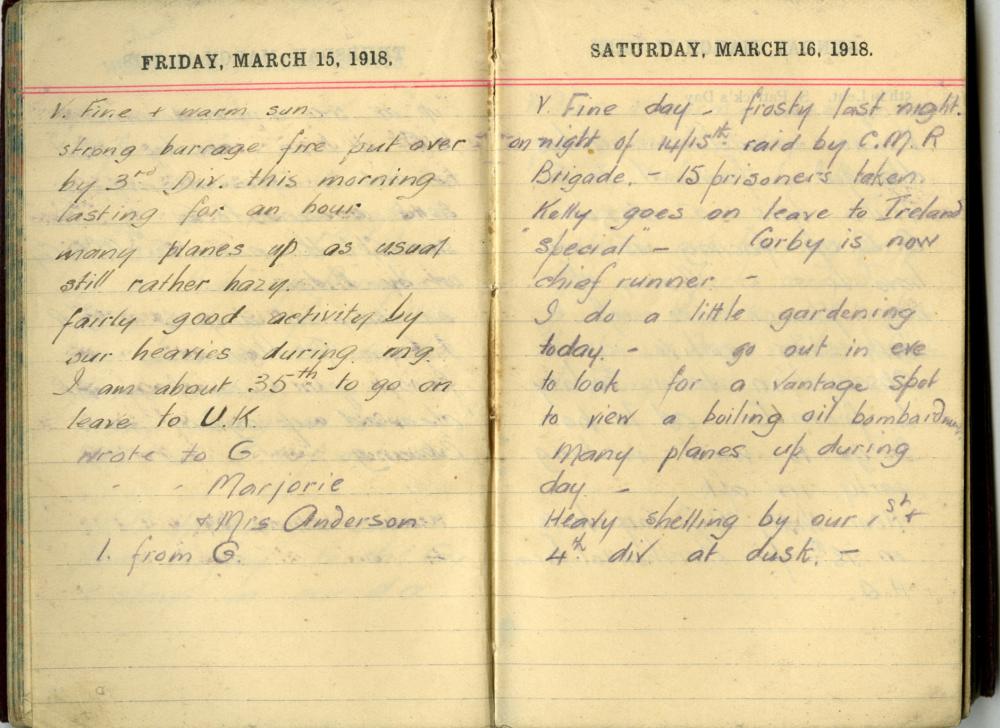 FRIDAY, MARCH 15, 1918.
V. Fine + warm sun
strong barrage fire put over
by 3rd Div. this morning
lasting for an hour
many planes up as usual
still rather hazy.
fairly good activity by
our heavies during mg.
I am about 35th to go on
leave to U.K.
wrote to G
" " Marjorie
+ Mrs Anderson
1. from G.
SATURDAY, MARCH 16, 1918.
V. Fine day - frosty last night.
- on night of 14/15th raid by C.M.R
Brigade. - 15 prisoners taken.
Kelly goes on leave to Ireland
"special" - Corby is now
chief runner. -
I do a little gardening
today. - go out in eve
to look for a vantage spot
to view a boiling oil bombardment.
Many planes up during
day -
Heavy shelling by our 1st +
4th div at dusk. -